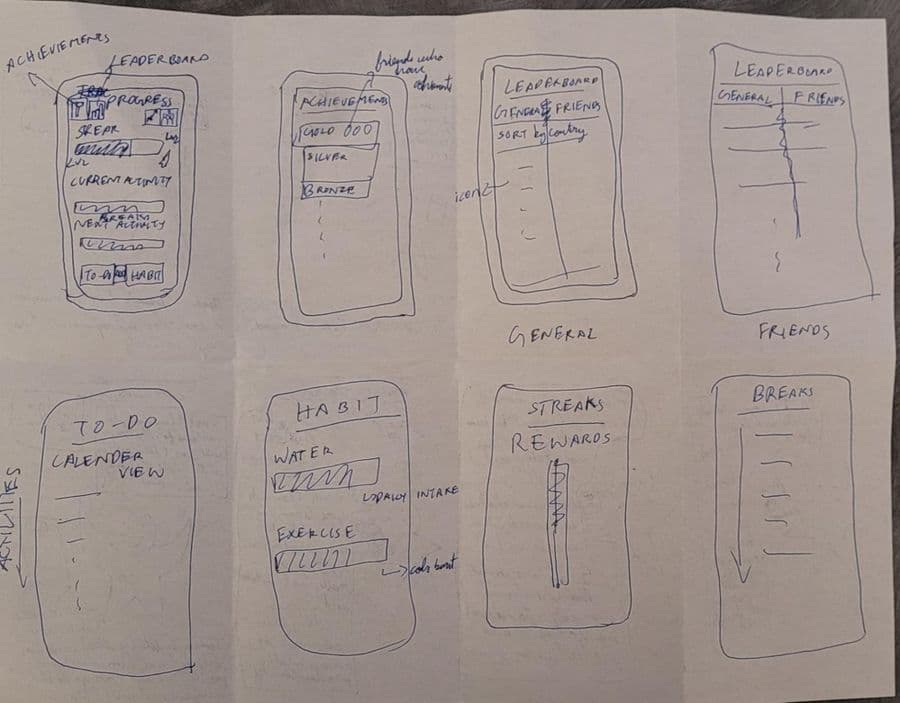 ACHIEVEMENTS
LEADERBOARD
PROGRESS
LVL
LVL
CURRENT ACTIVITY
BREAKS
NEXT ACTIVITY
TO-DO
HABIT
friends who
have
ACHIEVEMENTS
GOLD
SILVER
BRONZE
LEADERBOARD
GENERAL FRIENDS
SORT by country
icon
GENERAL
LEADERBOARD
GENERAL FRIENDS
FRIENDS
TO-DO
CALENDER
VIEW
ACTIVITIES
HABIT
WATER
DAILY INTAKE
EXERCISE
STREAKS
REWARDS
BREAKS